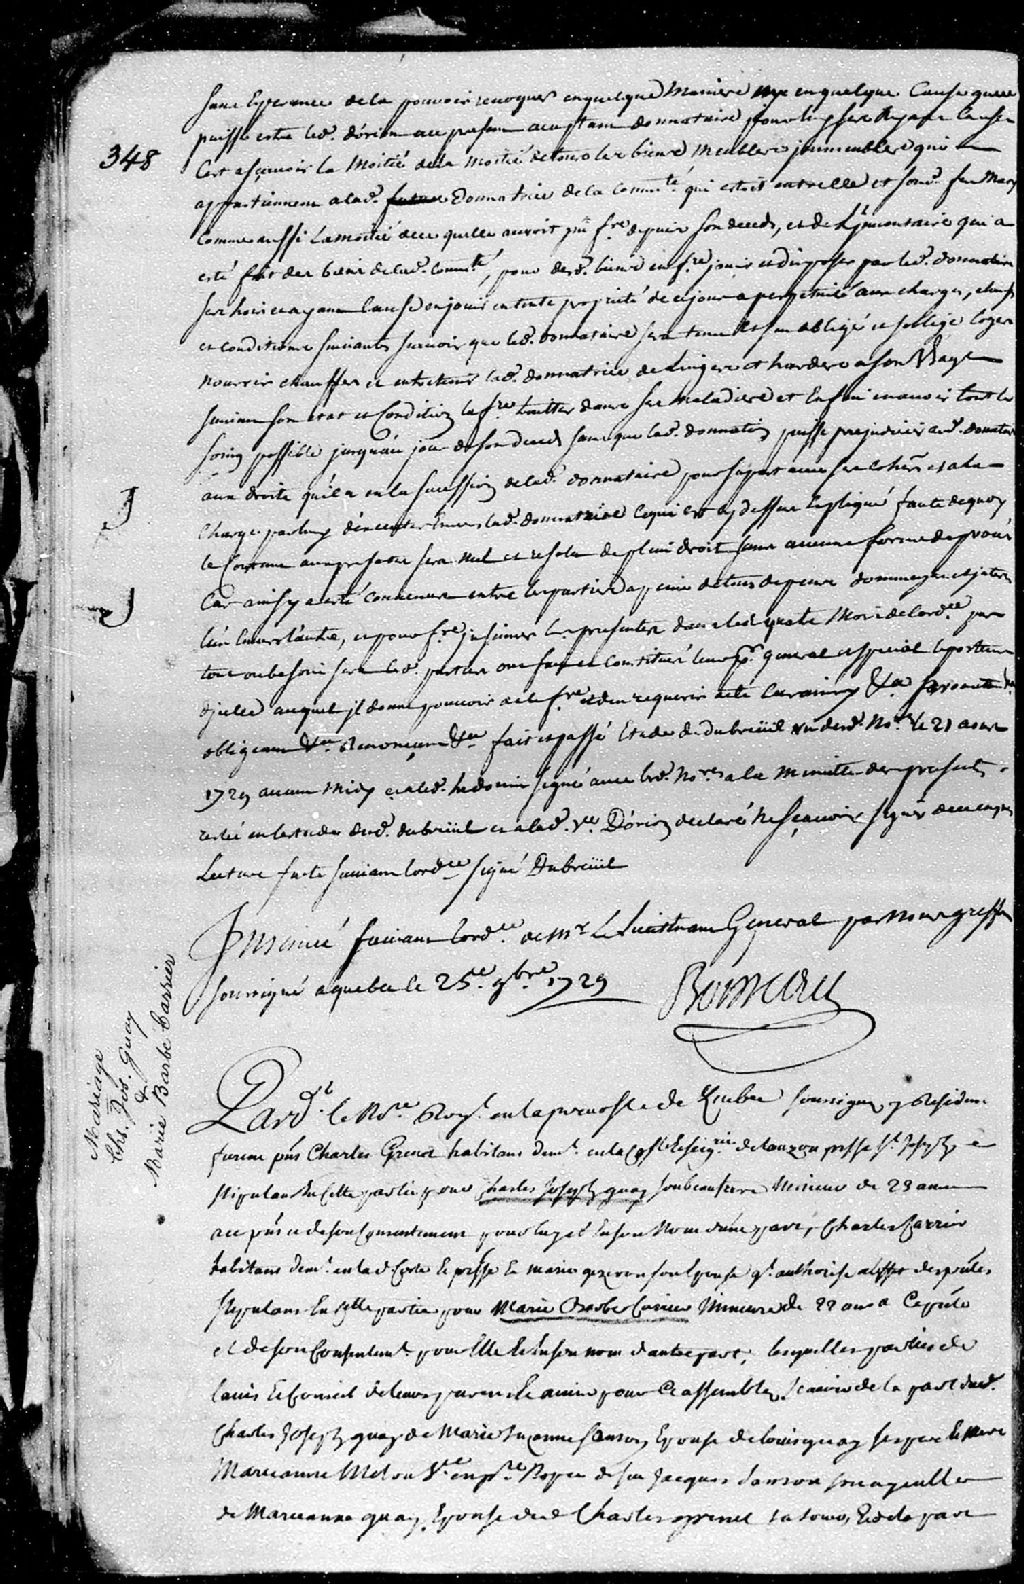 348
sans Esperance de la pouvoir revoquer en quelque Maniere en quelque Cause quelle
puisse estre led. dorion ace present acceptant donnataire pour luy ses hoirs ayans Cause
C'est asçavoir la Moitié de la Moitié de tous les biens Meubles jmmeubles qui
appartiennent a lad. donnatrice de la Commté qui estoit entrelle et son d. feu Mary
Comme aussi La moitié de ce quelle auroit pû fre depuis son deceds, et de Linventaire qui a
esté fait des biens de lad. Commté, pour desd. biens en fre jouir et disposer par led. donnataire
ses hoirs et ayans Cause en jouir en toute proprieté de ce jour a perpetuité aux charges,
et conditions suivantes sçavoir que led. donnataire sera tenu et obligé loger
nourrir chauffer et entretenir lad. donnatrice de Linges et hardes a son Usage
suivant son etat et Condition la fre traitter dans ses maladies et Enfin en avoir tout le
soin possible jusqu'au jour de son deceds sans que lad. donnation puisse prejudicier aud. donnataire
aux droits qu'il a en la succession de lad. donnatrice pour sa part avec ses Cohers et a la
Charge par luy dexecuter Envers lad. donnatrice ce qui est cy dessus Expliqué faute de quoy
le Contenu aux presentes sera nul et resolu de plein droit sans aucune forme de procés
Car ainsy a esté Convenu entre les parties a peine de tous depens dommages et interets
lun Envers l'autre, et pour fre jnsinuer les presentes dans les quatre Mois de lordce par
tout ou besoin sera lesd. parties ont fait et Constitué leur pr general et special le porteur
dicelles auquel jl donne pouvoir de le fre et den requerir acte
obligeant &a Renonceant &a fait et passé Etude de dubreüil un desd. Nores le 21 aoust
1729 avant Midy et a led. signé avec lesd. Nores a la Minutte des presentes
restée en lestude dud. dubreüil et a lad. ve Dorion declaré ne sçavoir signer de ce enquise
Lecture faite suivant lordce signé Dubreüil
Jnsinué suivant lordce de Mr Le Lieutenant General par Nous greffier
soussigné a quebec le 25e 9bre 1729 Boisseau
Mariage
Chs. Jos. Guay
&
Marie Barbe Carrier
Pardt le Nore Royl. en la prevosté de Quebec soussigné y Resident
furent pns Charles Grenet habitant demt. en la Coste et seigrie de Lauzon psse St. Joseph
stipulant En cette partie pour Charles Joseph guay son beaufrere Mineur de 23 ans
ace pnt et de son Consentement pour luy et En son Nom dune part, Charles Carrier
habitant demt. en lad Coste et psse Et marie son Epouse qt. authorise a leffet des pntes
stipulans En cette partie pour Marie Barbe Carrier Mineure de 22 ans a Ce pnte
et de son Consentemt. pour Elle Et En son nom dautre part, lesquelles parties de
lavis Et Conseil de leurs parens Et amis pour Ce assemblez, scavoir de la part dud.
Charles Joseph guay de Marie Suzanne Samson Epouse de louis guay ses pere et mere
Marianne Metou Ve de feu Jacques Samson son ayeulle
de Marianne guay Epouse dud Charles grenet sa soeur, Et de la part